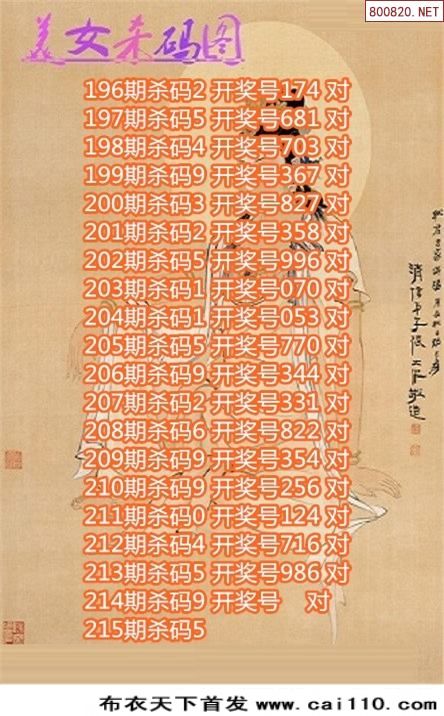 800820.NET
美女杀码图
196期杀码2 开奖号174 对
197期杀码5 开奖号681 对
198期杀码4 开奖号703 对
199期杀码9 开奖号367 对
200期杀码3 开奖号827 对
201期杀码2 开奖号358 对
202期杀码5 开奖号996 对
203期杀码1 开奖号070 对
204期杀码1 开奖号053 对
205期杀码5 开奖号770 对
206期杀码9 开奖号344 对
207期杀码2 开奖号331 对
208期杀码6 开奖号822 对
209期杀码9 开奖号354 对
210期杀码9 开奖号256 对
211期杀码0 开奖号124 对
212期杀码4 开奖号716 对
213期杀码5 开奖号986 对
214期杀码9 开奖号 对
215期杀码5
布衣天下首发 www.cai110.com